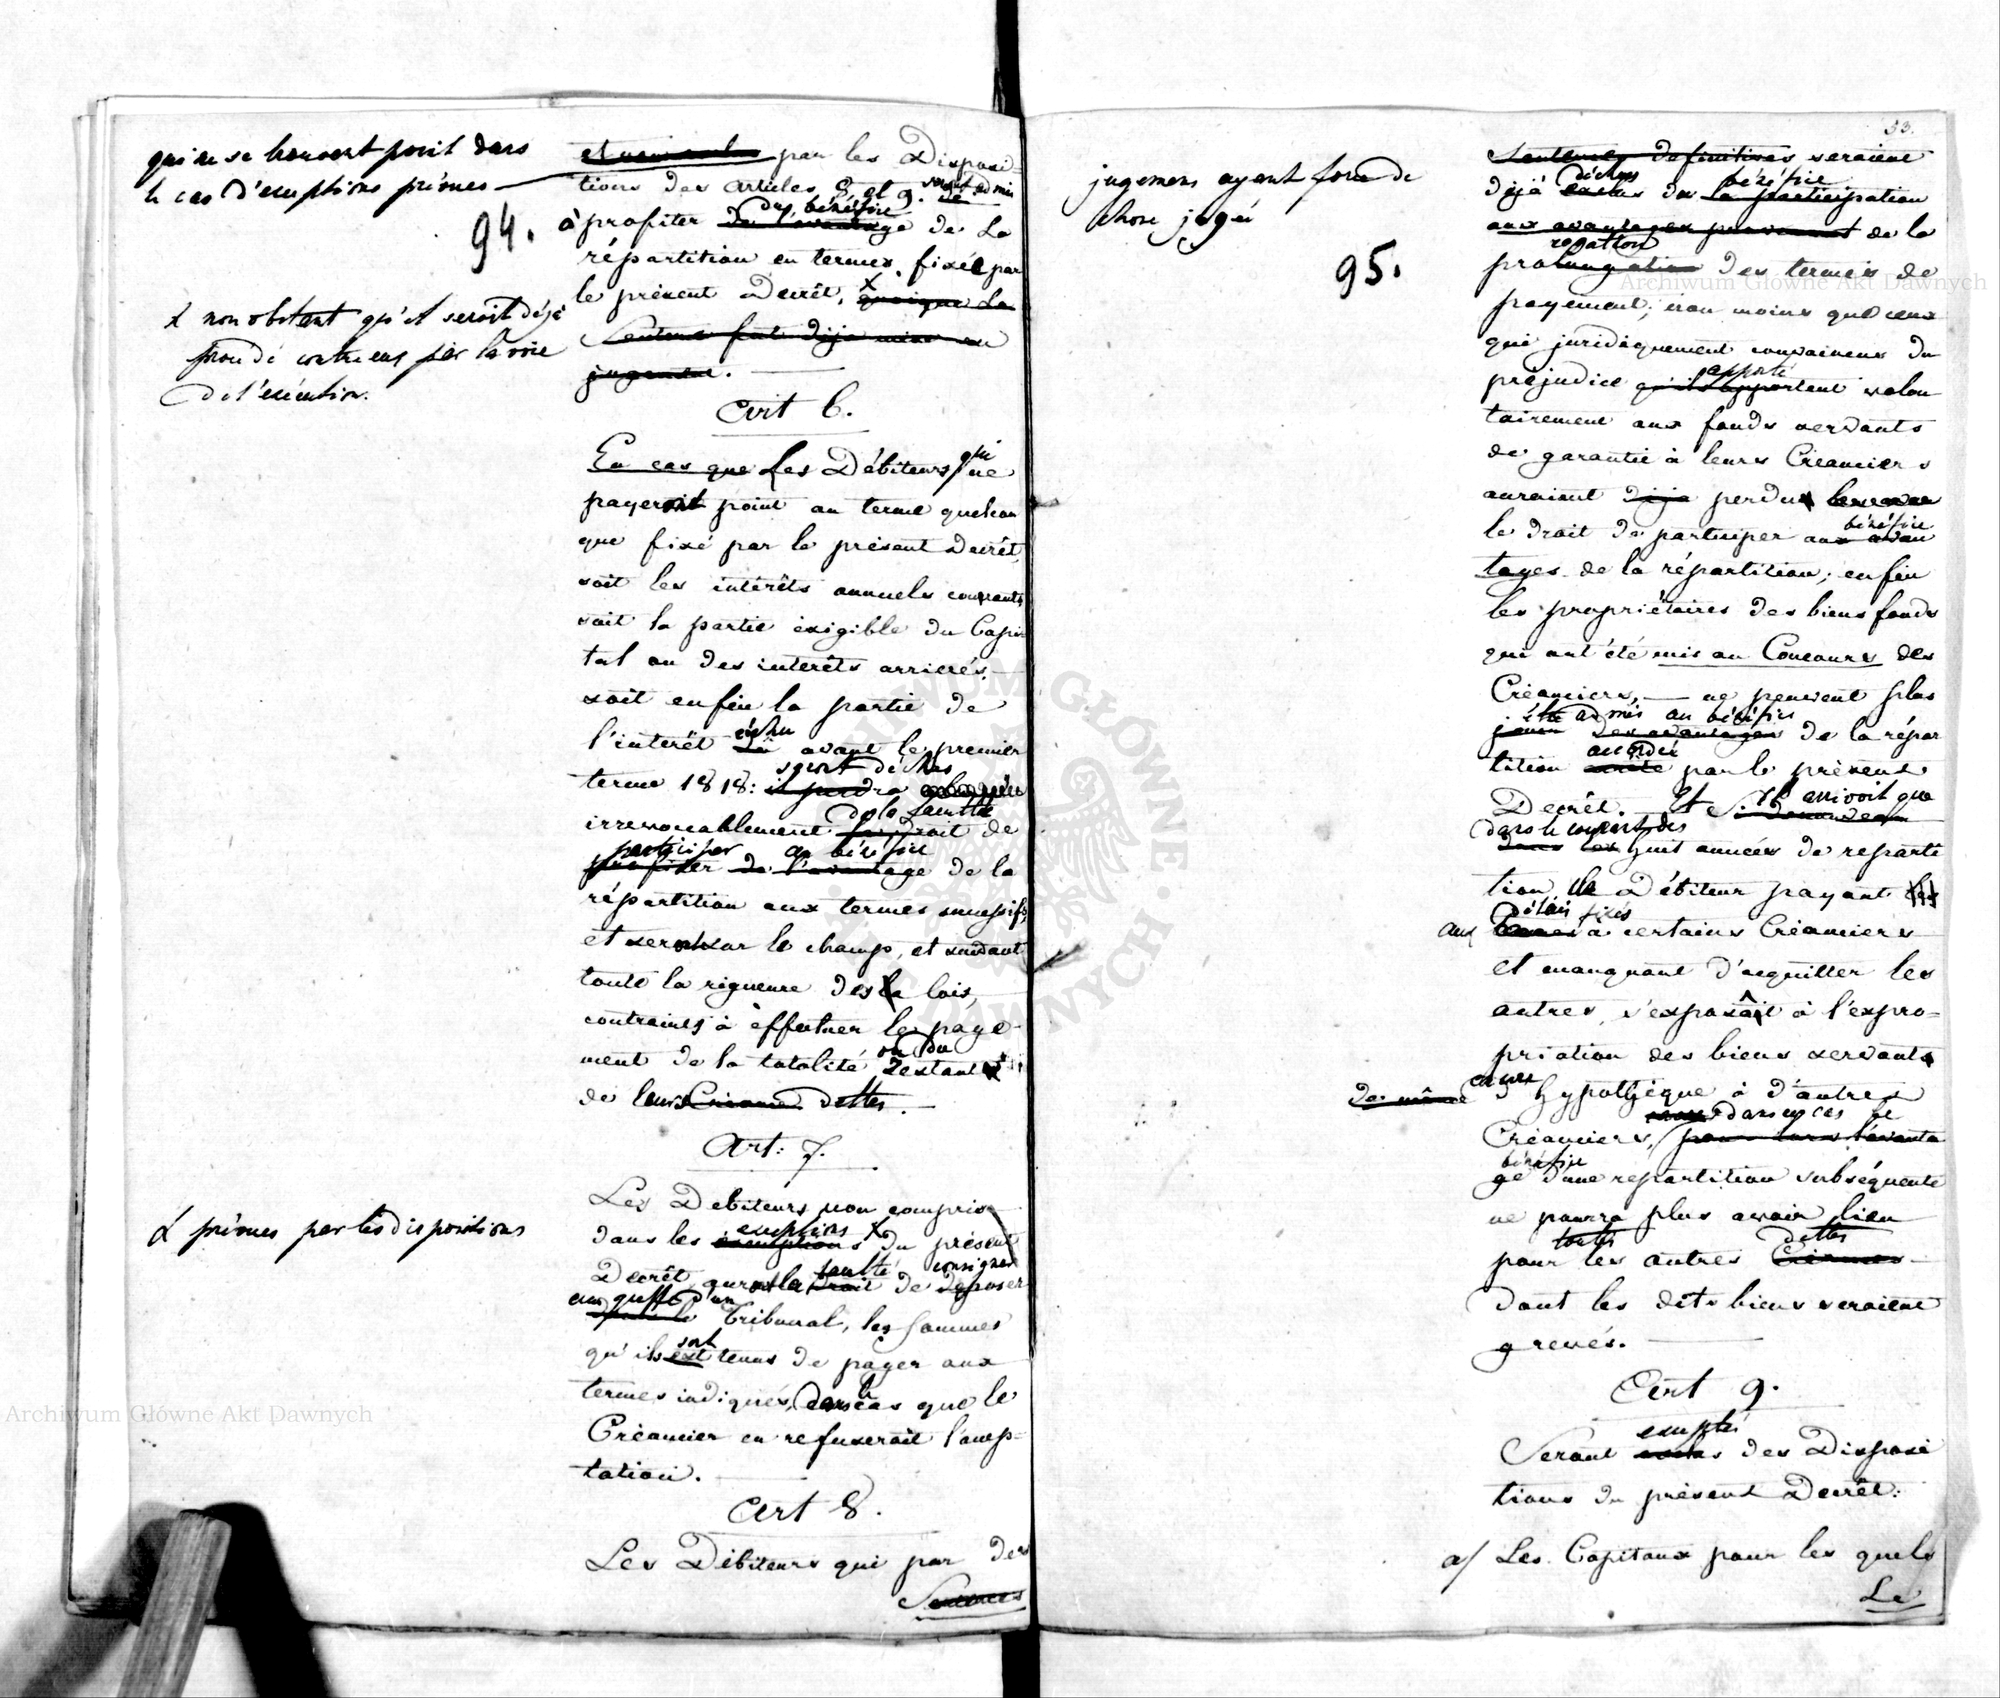 qui ne se trouvent point dans
le cas d'exceptions prévues
94.
par les Disposi-
tions des articles 8 et 9. seront admis
à profiter du bénéfice de la
répartition en termes, fixée par
le présent Décrêt, x quoique la
Sentence fut deja mise en
jugement.
x non obstant qu'il seroit déjà
procédé contre eux par la voie
de l'exécution.
Art 6.
En cas que Les Débiteurs qui ne
payeront point au terme quelcon
que fixé par le présent Decrêt,
soit les intérêts annuels courants
soit la partie exigible du Capi-
tal ou des interêts arrierés,
soit enfin la partie de
l'interêt dû échu avant le premier
terme 1818: il perdra seront déchus
irrevocablement le droit de la faculté de
profiter de l'avantage participer au bénéfice de la
répartition aux termes successifs,
et seront sur le champ, et suivant
toute la rigueure des lois,
contraints à effectuer le paye-
ment de la totalité ou du restant
de leurs Créances dettes.
Art: 7.
Les Debiteurs non compris
dans les exceptions x du présent
x prévues par les dispositions
Decrêt, auront la droit faculté de deposer consigner
au greffe d'un Tribunal, les sommes
qu'ils sont tenus de payer aux
termes indiqués, dans le cas que le
Créancier en refuserait l'accep-
tation.
Art 8.
Les Débiteurs qui par des
Sentences
53.
jugemens ayant force de
chose jugée
95.
Sentences definitives seraient
déjà exclus déchus du bénéfice la participation
aux avantages provenant de la
prolongation rogation des termes de
payement; non moins que ceux
qui juridiquement convaincus du
préjudice qu'ils apportent apporté volon
tairement aux fonds servants
de garantie à leurs Créanciers
auraient deja perdu
le droit de participer aux avan bénéfice
tages de la répartition; enfin
les propriétaires des biens fonds
qui ont été mis au Concours des
Créanciers, ne peuvent plus
jouir des avantages être admis au bénéfice de la répar
tition accordée par le présent
Decrêt. Et S'il arrivoit que
dans les dans le courant des huit années de reparti
tion, le Débiteur payant
aux délais fixés à certains Créanciers
et manquant d'acquitter les
autres, s'exposât à l'expro-
priation des biens servants
de même d'hypothèque à d'autres
Créanciers, pour lors l'avanta dans ces cas le
ge bénéfice d'une repartition subséquente
ne pourra plus avoir lieu
pour toutes les autres Créances dettes
dont les dits biens seraient
grevés.
Art 9.
Seront exclus exceptés des Disposi
tions du présent Decrêt:
a/ Les Capitaux pour les quels
Le
Archiwum Główne Akt Dawnych
Archiwum Główne Akt Dawnych
ARCHIWUM GŁÓWNE AKT DAWNYCH